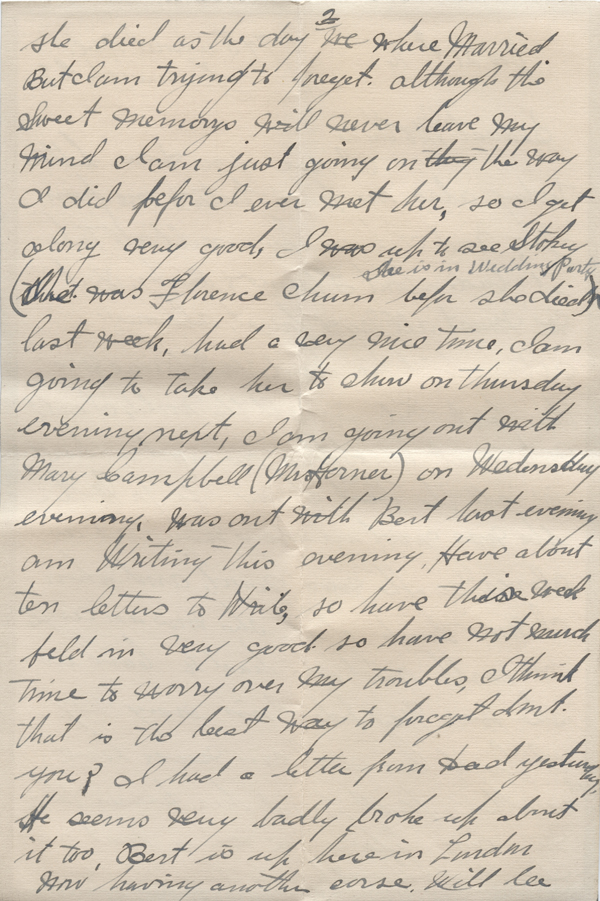 2
she died as the day we where Married
But I am trying to forget. although the
sweet memorys will never leave my
mind I am just going on the way
I did befor I ever met her, so I get
along very good, I was up to see Stokey
She is in Wedding Party
(that was Florence chum befor she died)
last week, had a very nice time, I am
going to take her to show on thursday
evening next, I am going out with
Mary Campbell (Mrs Horner) on Wedensday
evening, was out with Bert last evening
am Writing this evening, Have about
ten letters to Write, so have this week
feld in very good. so have not much
time to worry over my troubles, I think
that is the best way to forget dont.
you? I had a letter from Dad yesturday,
He seems very badly broke up about
it too, Bert is up here in London
Now having another corse. Will be